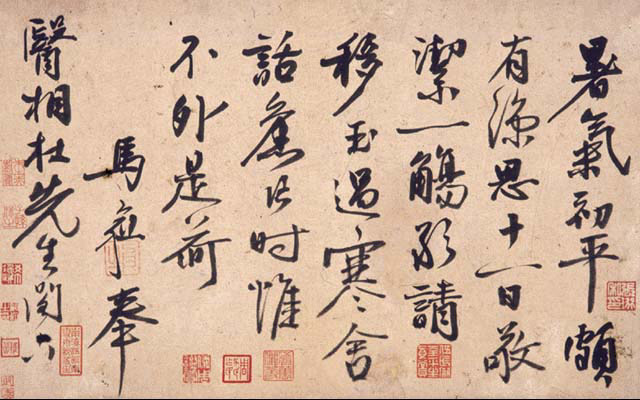 暑氣初平頗
有涼思十一日敬
潔一觴형請
移玉過寒舍
話舊片時惟
不外是荷
馬奉
醫相杜先生閣下